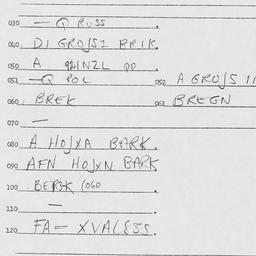 030 — Q RUSS .
040 DI GRO/S1 BRIK.
050 A QQ .
051 —Q POL 052 A GRO/S 11
060 BREK 061 BREGN
070 —
080 A HO/XA BARK.
090 AFN HO/XN BARK
100 . BEREK (060 .
110 — .
120 FA— XVALESS.